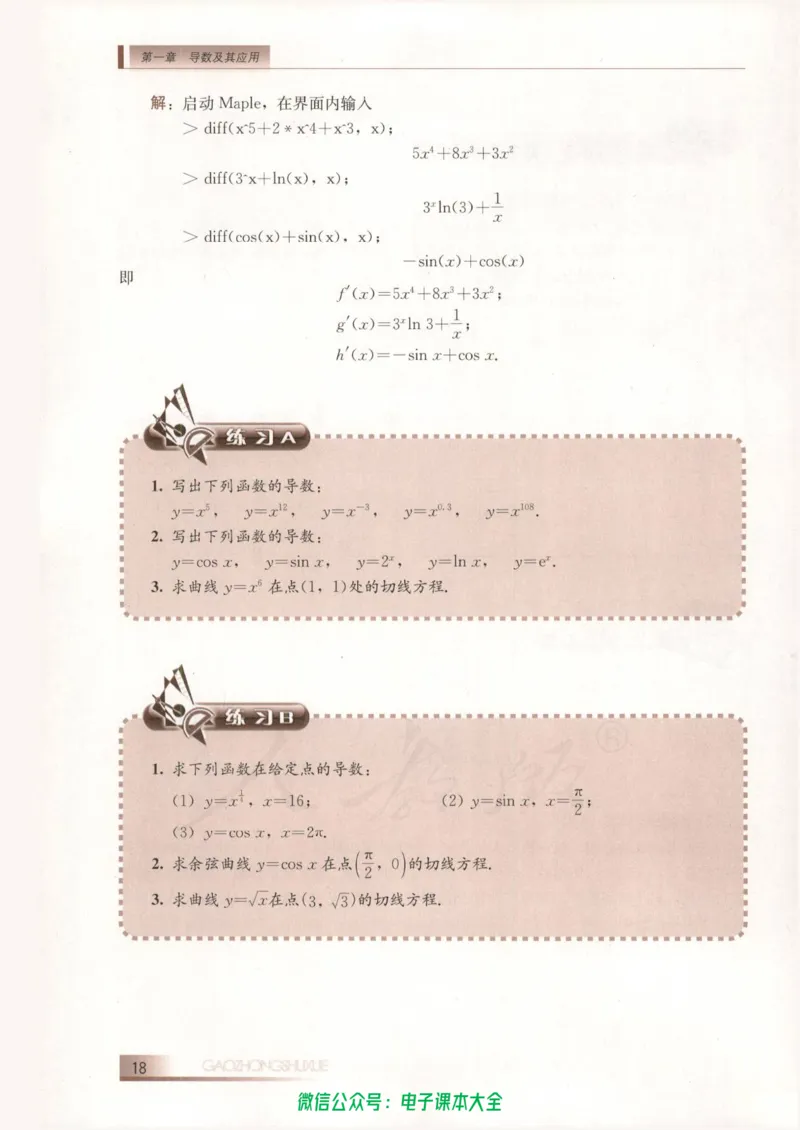 第一章 导数及其应用
解：启动 Maple，在界面内输入
> diff(x^5+2*x^4+x^3, x);
5x⁴+8x³+3x²
> diff(3^x+ln(x), x);
3ˣln(3)+1/x
> diff(cos(x)+sin(x), x);
-sin(x)+cos(x)
即
f′(x)=5x⁴+8x³+3x²;
g′(x)=3ˣln 3+1/x;
h′(x)=-sin x+cos x.
练习A
1. 写出下列函数的导数：
y=x⁵, y=x¹², y=x⁻³, y=x^0.3, y=x¹⁰⁸.
2. 写出下列函数的导数：
y=cos x, y=sin x, y=2ˣ, y=ln x, y=eˣ.
3. 求曲线 y=x⁶ 在点(1, 1)处的切线方程.
练习B
1. 求下列函数在给定点的导数：
(1) y=x^(1/4), x=16; (2) y=sin x, x=π/2;
(3) y=cos x, x=2π.
2. 求余弦曲线 y=cos x 在点(π/2, 0)的切线方程.
3. 求曲线 y=√x在点(3, √3)的切线方程.
18 GAOZHONGSHUXUE
微信公众号：电子课本大全